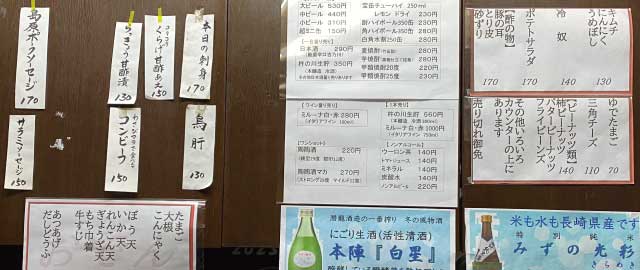 本日の刺身
170
コリコリくらげ甘酢あえ
150
130
島原ポークソーセージ
170
鳥肝
130
コンビーフ
150
サラミソーセージ
150
大ビール 530円
中ビール 410円
小ビール 310円
超ミニ缶 150円
日本酒 290円
杵の川生貯 350円
宝缶チューハイ 250ml
レモン ドライ 230円
角ハイボール350缶 280円
白角水割250缶 250円
麦焼酎
芋焼酎
芋焼酎20度 220円
芋焼酎25度 230円
【ワイン量り売り】
ミルーナ白・赤 280円
(イタリアワイン 180ml)
【1本売り】
杵の川生貯 560円
ミルーナ白・赤 1000円
(イタリアワイン 750ml)
【ワンショット】
陶陶酒 220円
陶陶酒マカ 270円
【ノンアルコール】
ウーロン茶 140円
トマトジュース 140円
ミネラル 140円
炭酸水 140円
ノンアルビール 220円
キムチ
にんにく
うめぼし
130
冷奴
140
ポテトサラダ
170
【酢の物】
豚の耳
とり皮
砂ずり
170
ゆでたまご
70
三角チーズ
110
【ピーナッツ類】
柿ピーナッツ
バターピーナッツ
フライビーンズ
140
その他いろいろ
カウンターの上に
あります
売り切れ御免
たまご
大根
こんにゃく
ぼう天
いか天
れんこん天
ぎょうざ天
もち巾着
牛すじ
あつあげ
だしどうふ
潜龍酒造の一番搾り 冬の風物酒
にごり生酒(活性清酒)
本陣『白墨』
米も水も長崎県産です
特別純米
みずの光彩
きらめき